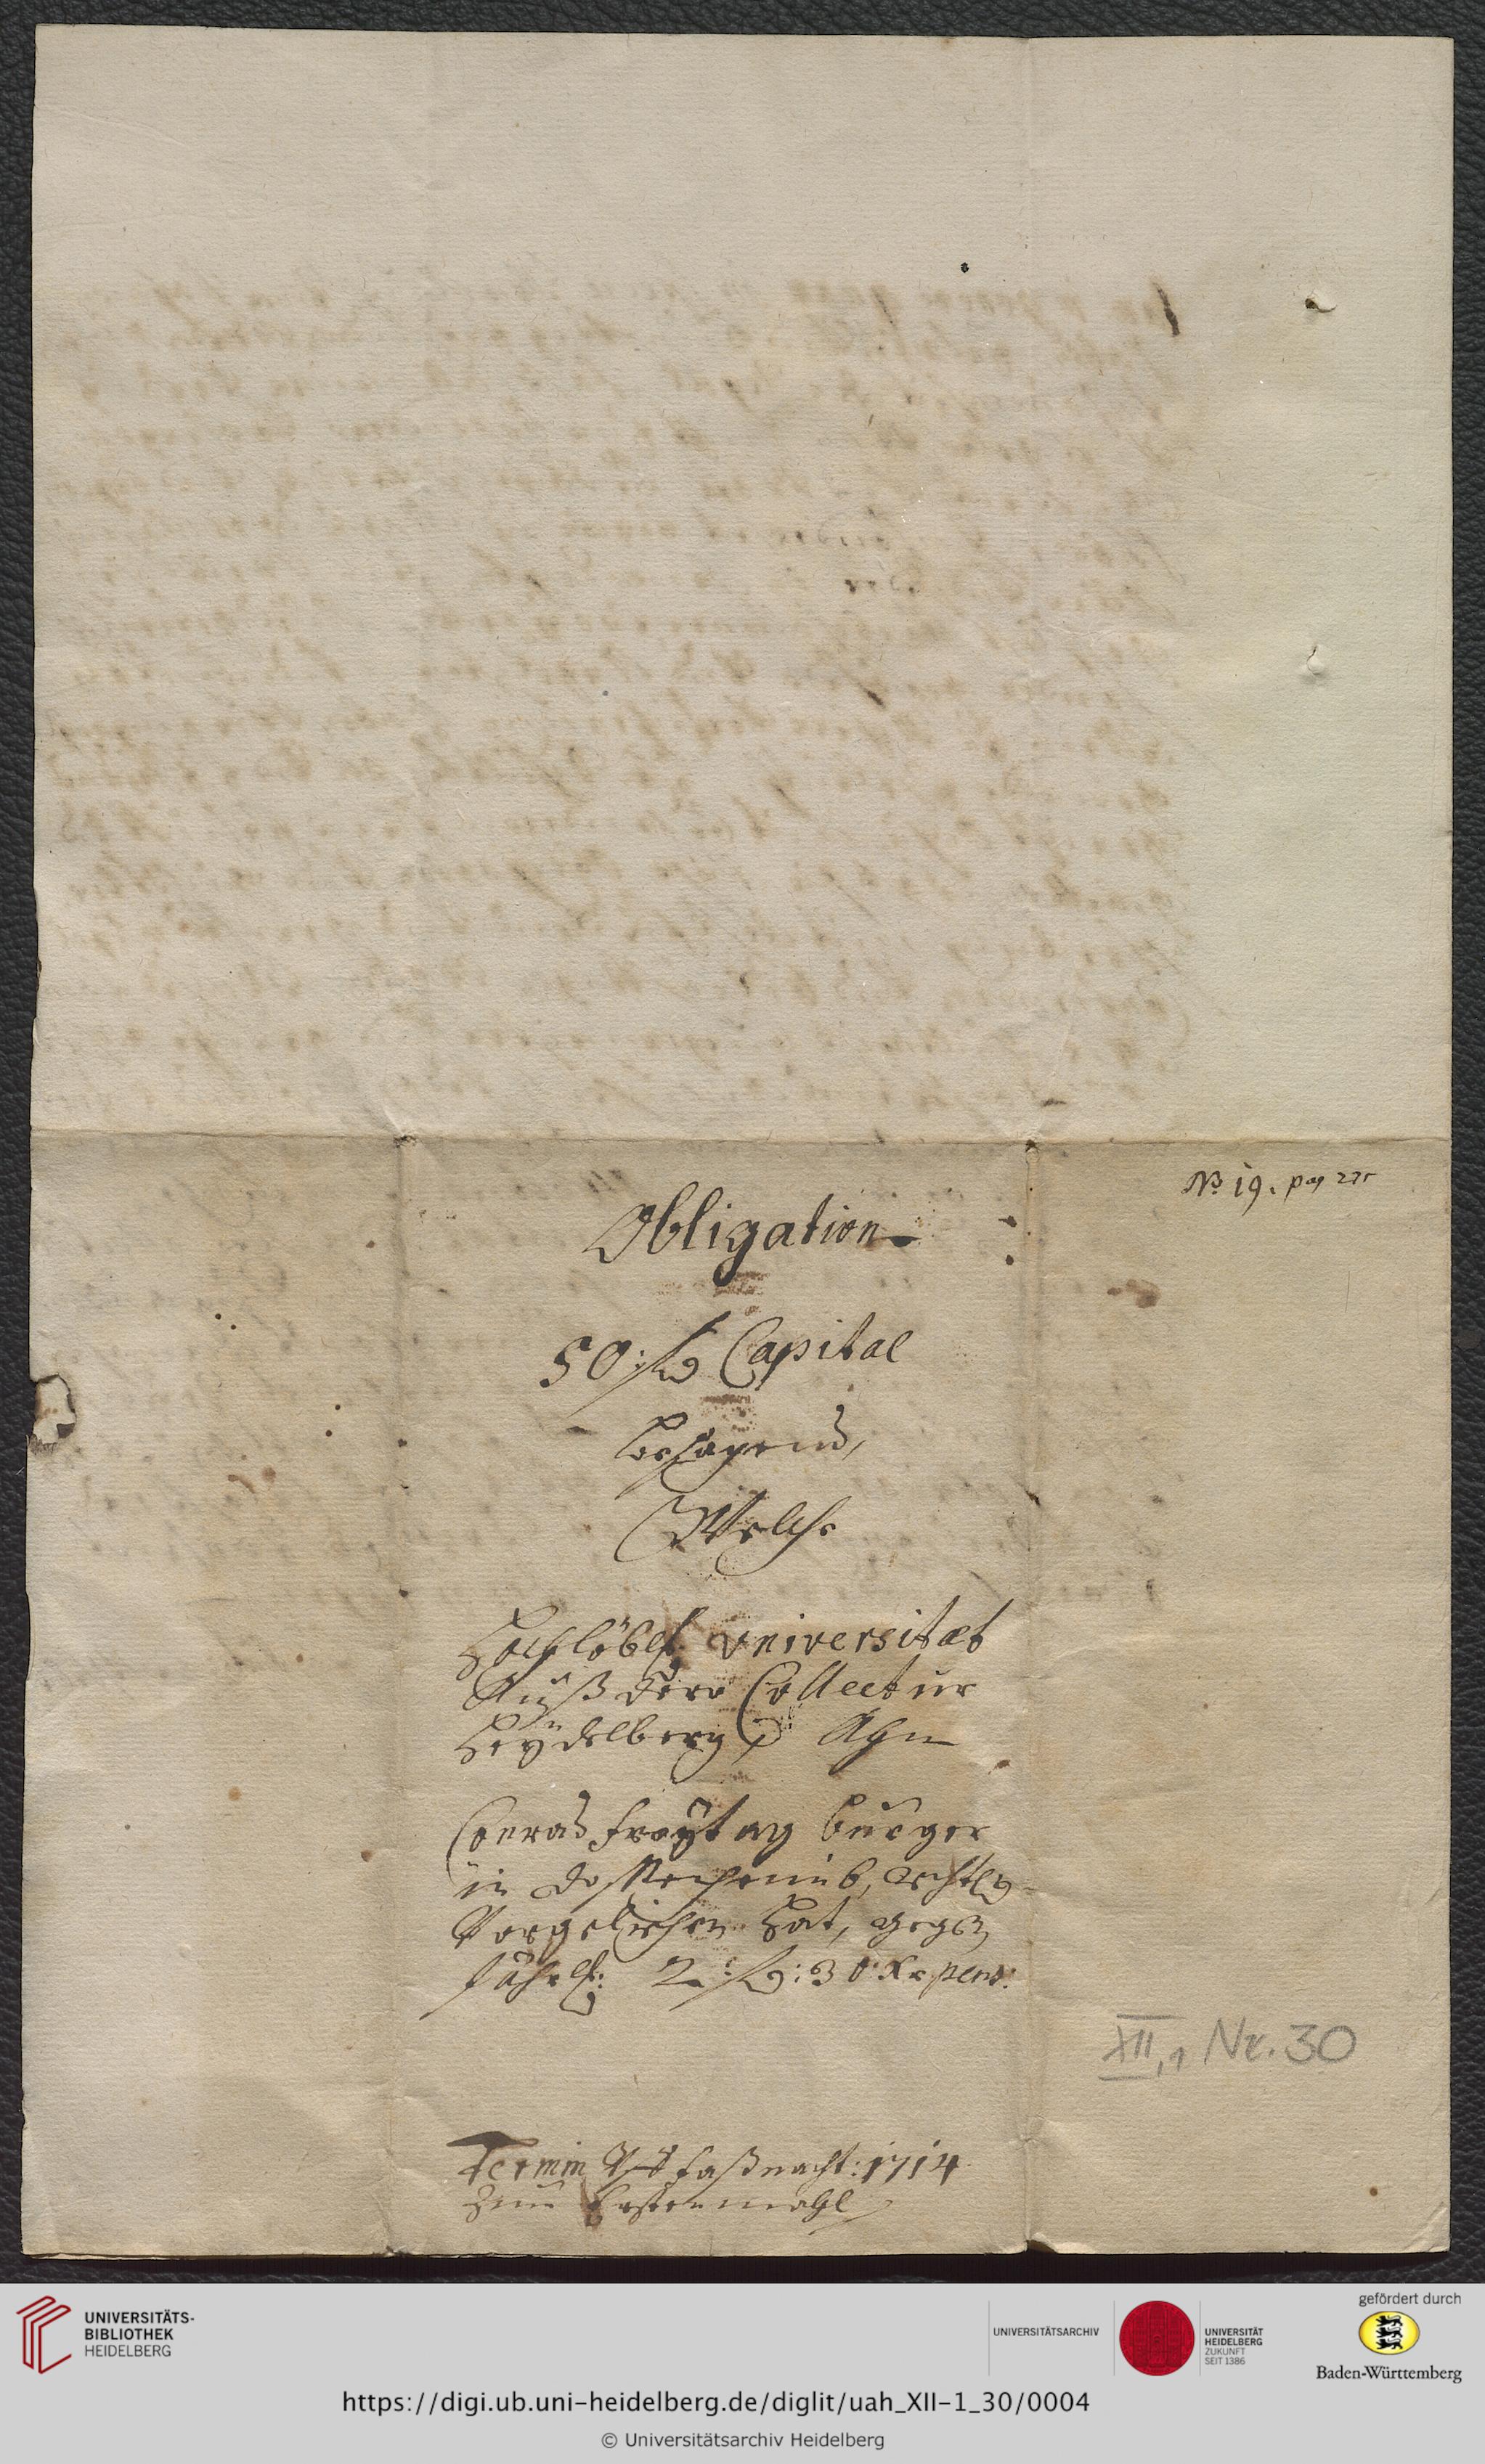 No 19. pag 225
Obligation
50: fl Capital
besagend,
Welche
Hochlöbl. Universitæt
Auß dero Collectur
Heÿdelberg Ahn
Conrad Freÿtag burger
in
Vorgeliehen hat, gegen
Jährl: 2: fl: 30 Kr pens:
XII,1 Nr. 30
Termin Aff faßnacht: 1714
Zum Erstenmahl
UNIVERSITÄTS-
BIBLIOTHEK
HEIDELBERG
UNIVERSITÄTSARCHIV
UNIVERSITÄT
HEIDELBERG
ZUKUNFT
SEIT 1386
gefördert durch
Baden-Württemberg
https://digi.ub.uni-heidelberg.de/diglit/uah_XII-1_30/0004
© Universitätsarchiv Heidelberg